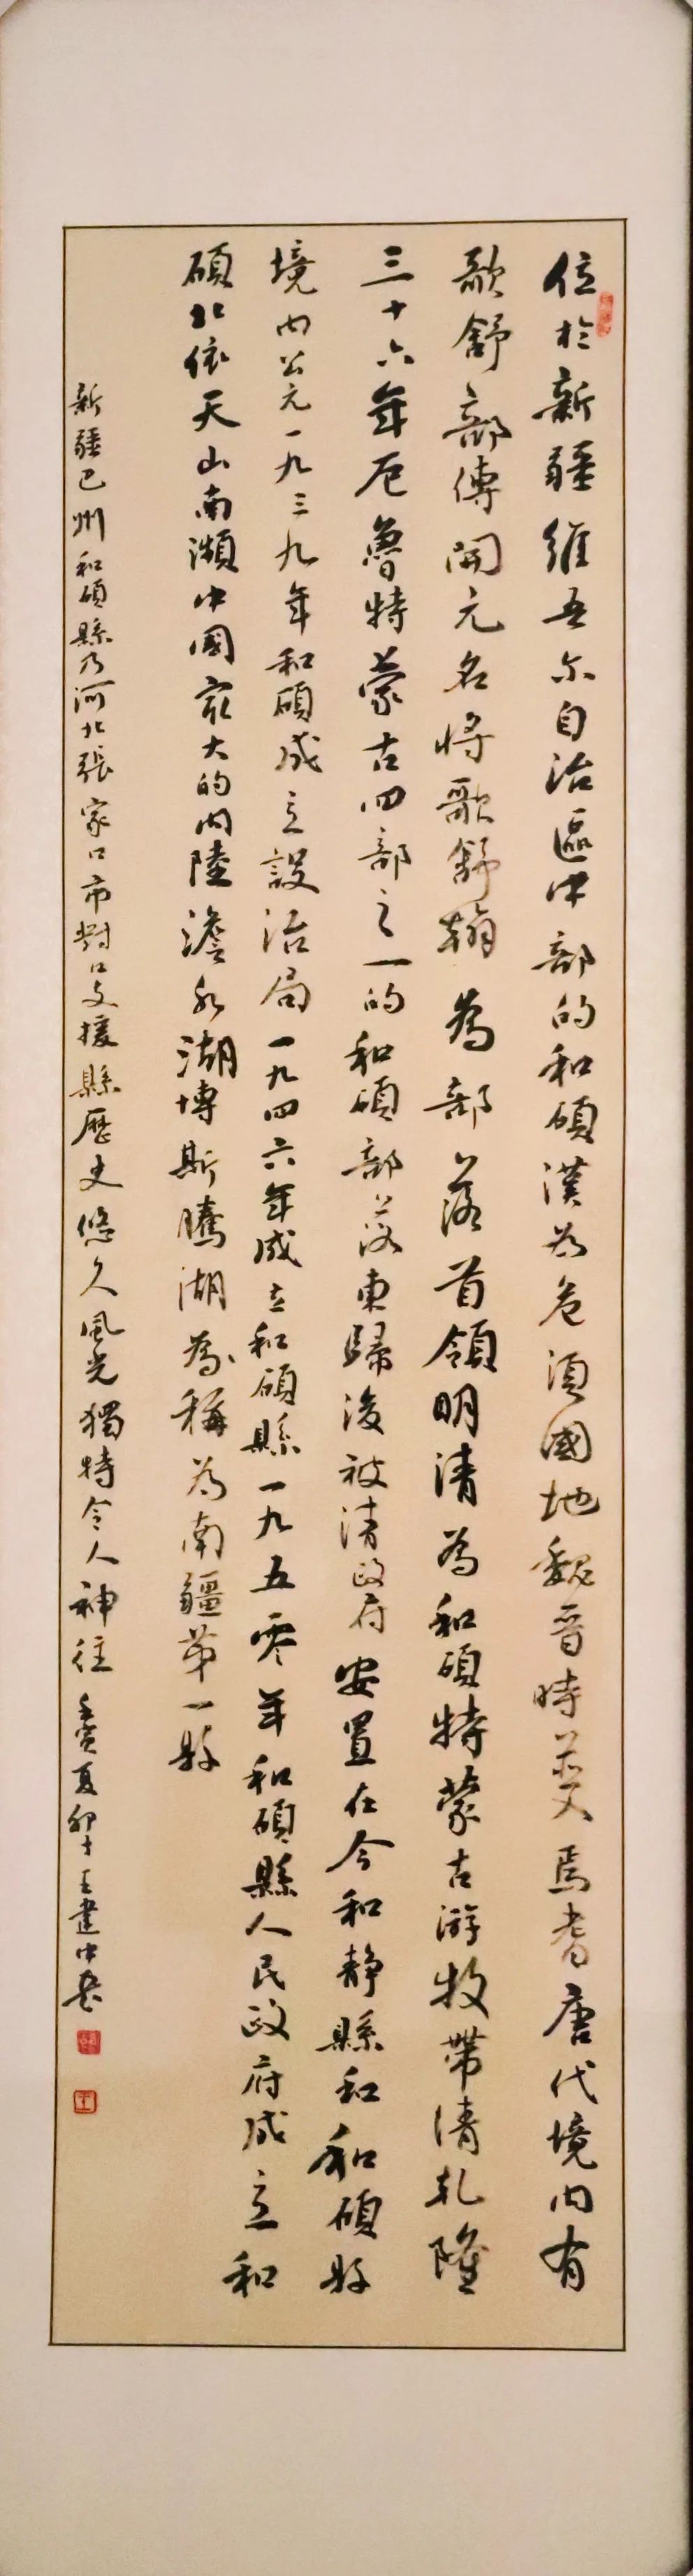 位於新疆維吾尔自治區中部的和碩漢为危湏國地魏晋時并入焉耆唐代境内有
歌舒部傳開元名将歌舒翰為部落首領明清為和碩特蒙古游牧帶清乹隆
三十六年厄魯特蒙古四部之一的和碩部落東歸後被清政府安置在今和静縣和和碩縣
境内公元一九三九年和碩成立設治局一九四六年成立和碩縣一九五零年和碩縣人民政府成立和
碩北依天山南瀕中國最大的内陸澹水湖博斯騰湖為稱为南疆第一縣
新疆巴州和碩縣乃河北張家口市對口支援縣歷史悠久風光獨特令人神往 壬寅夏卯十王建中书
王